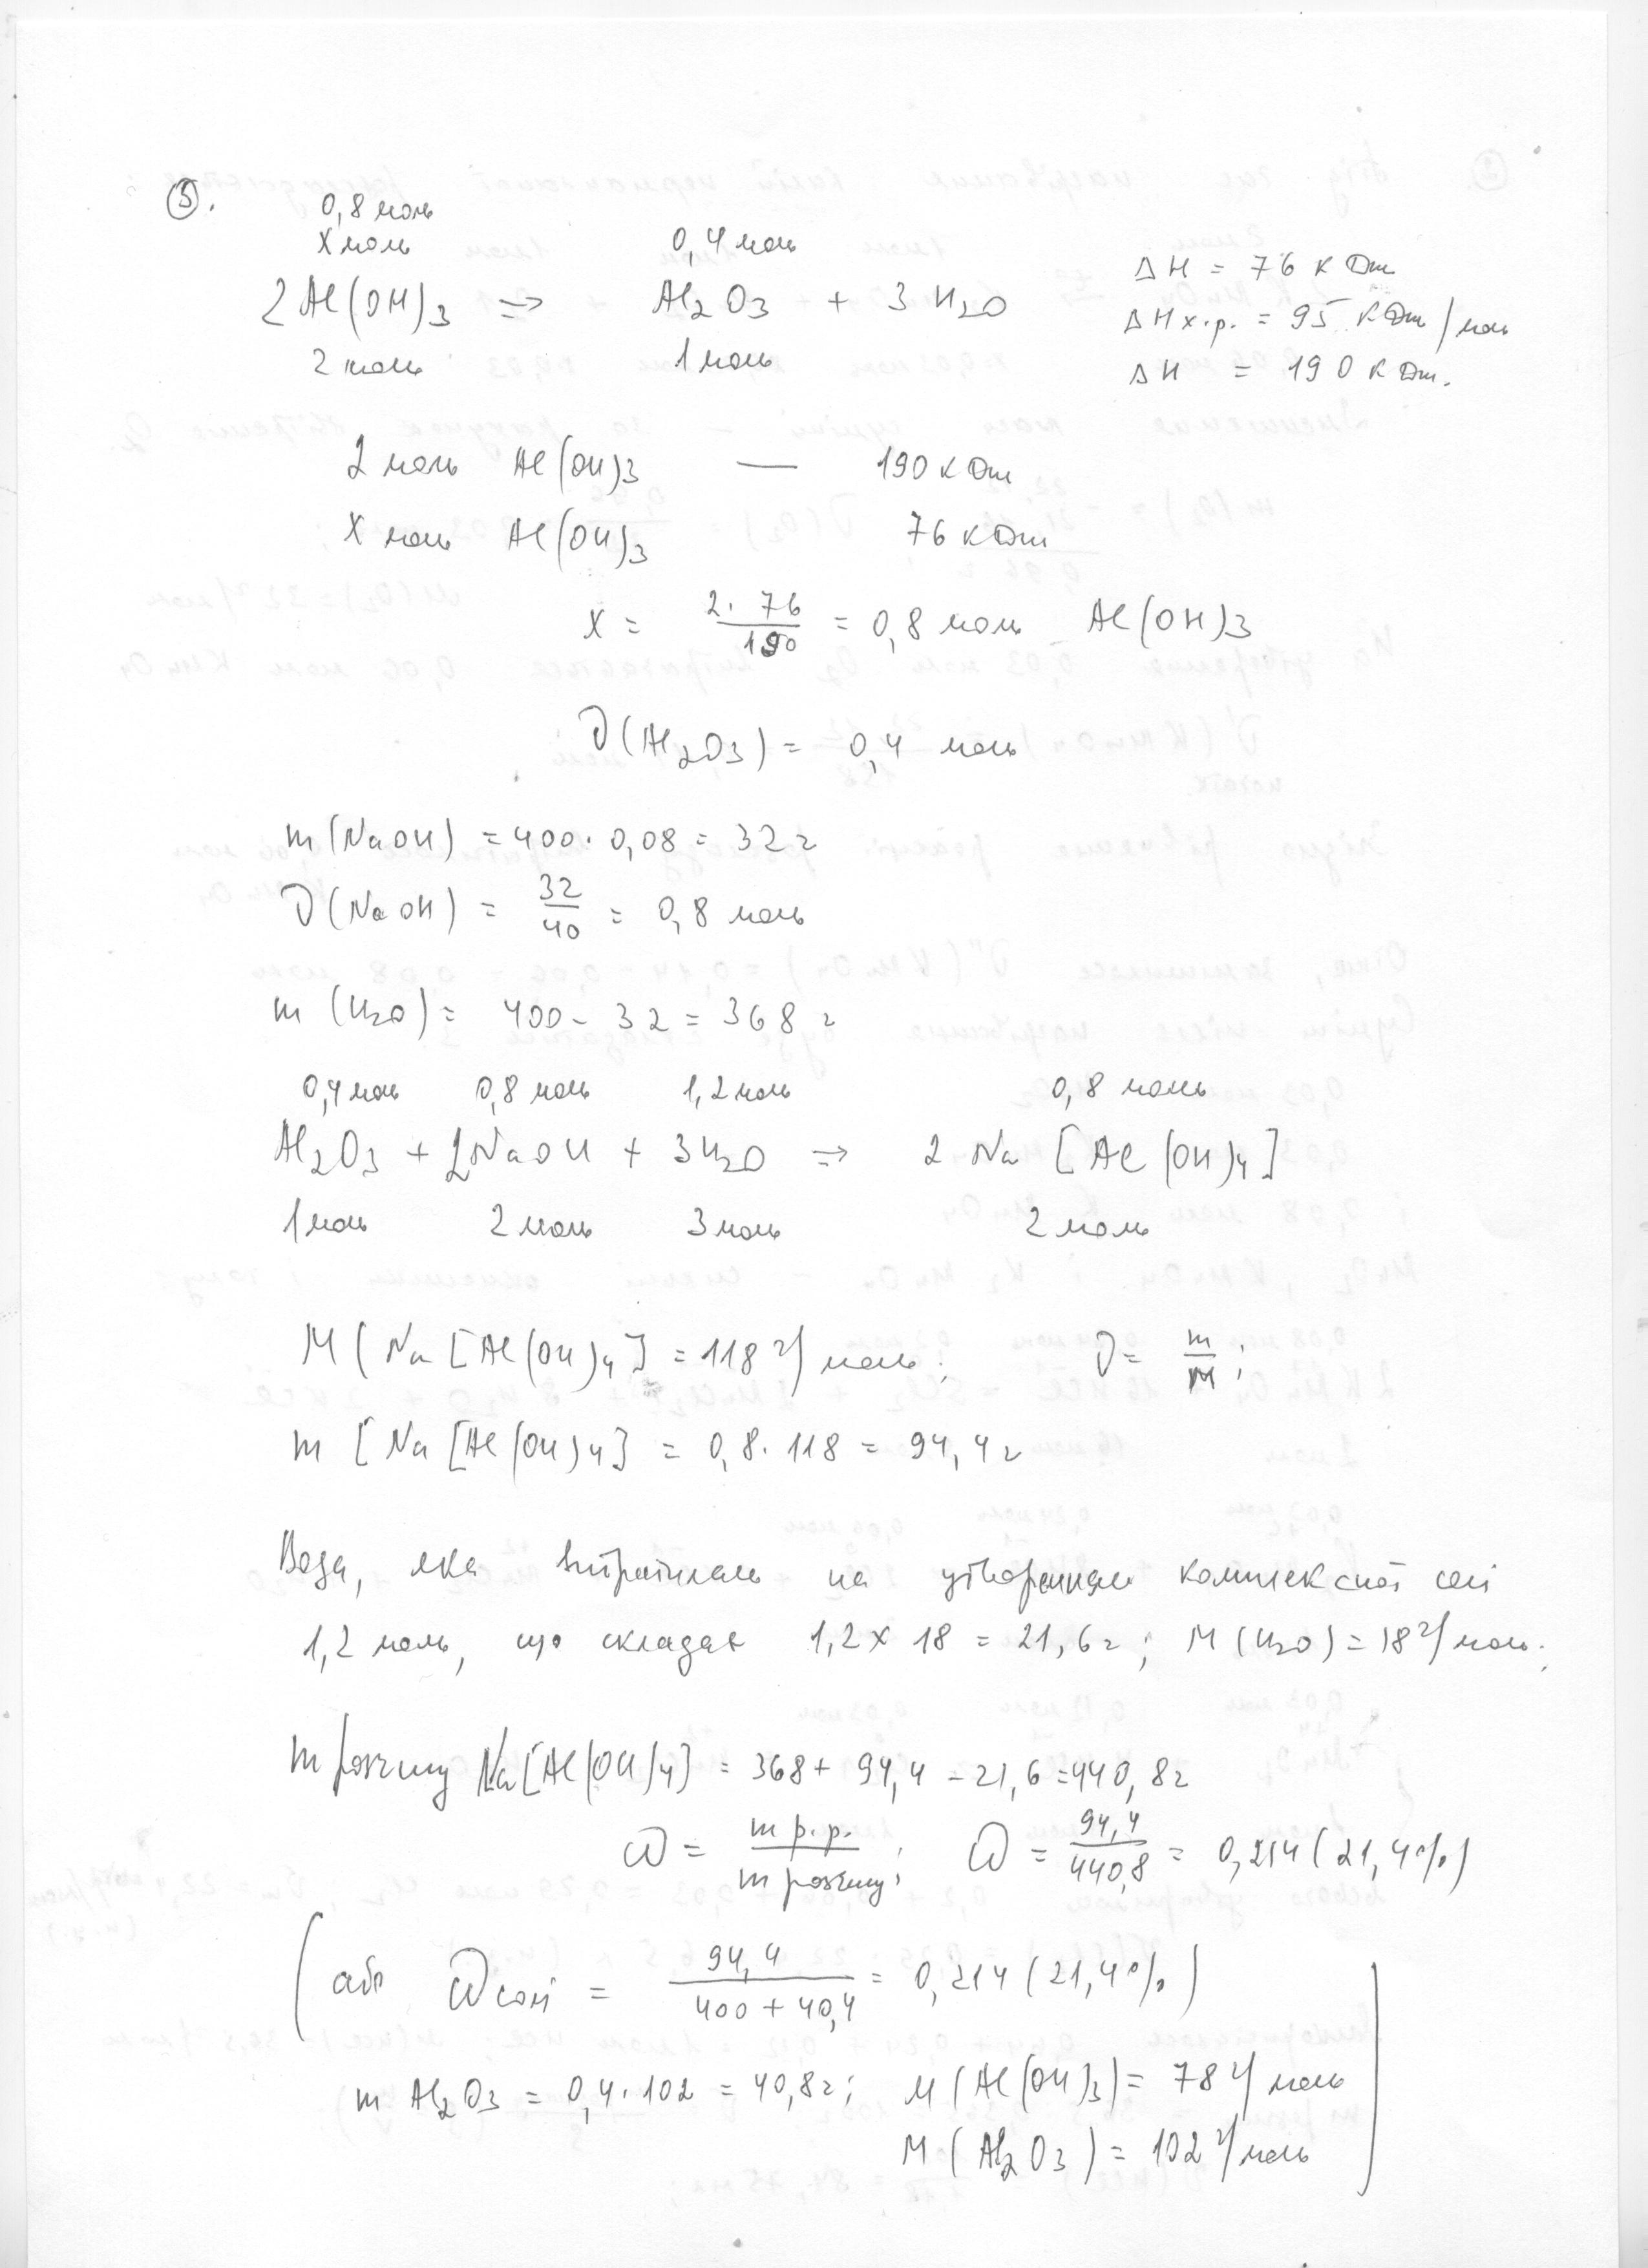 5.
0,8 моль
X моль 0,4 моль
2Al(OH)3 => Al2O3 + 3H2O
2 моль 1 моль
ΔH = 76 кДж
ΔH х.р. = 95 кДж/моль
ΔH = 190 кДж.
2 моль Al(OH)3 — 190 кДж
X моль Al(OH)3 76 кДж
X = 2·76/190 = 0,8 моль Al(OH)3
ν(Al2O3) = 0,4 моль
m(NaOH) = 400·0,08 = 32 г
ν(NaOH) = 32/40 = 0,8 моль
m(H2O) = 400 - 32 = 368 г
0,4 моль 0,8 моль 1,2 моль 0,8 моль
Al2O3 + 2NaOH + 3H2O => 2 Na[Al(OH)4]
1 моль 2 моль 3 моль 2 моль
M(Na[Al(OH)4] = 118 г/моль; ν = m/M;
m[Na[Al(OH)4] = 0,8·118 = 94,4 г
Вода, яка витратилась на утворення комплексної солі
1,2 моль, що складає 1,2 x 18 = 21,6 г; M(H2O) = 18 г/моль.
m розчину Na[Al(OH)4] = 368 + 94,4 - 21,6 = 440,8 г
ω = m р.р./m розчину; ω = 94,4/440,8 = 0,214 (21,4%)
(або ω солі = 94,4/400 + 40,4 = 0,214 (21,4%)
m Al2O3 = 0,4·102 = 40,8 г; M(Al(OH)3) = 78 г/моль
M(Al2O3) = 102 г/моль)